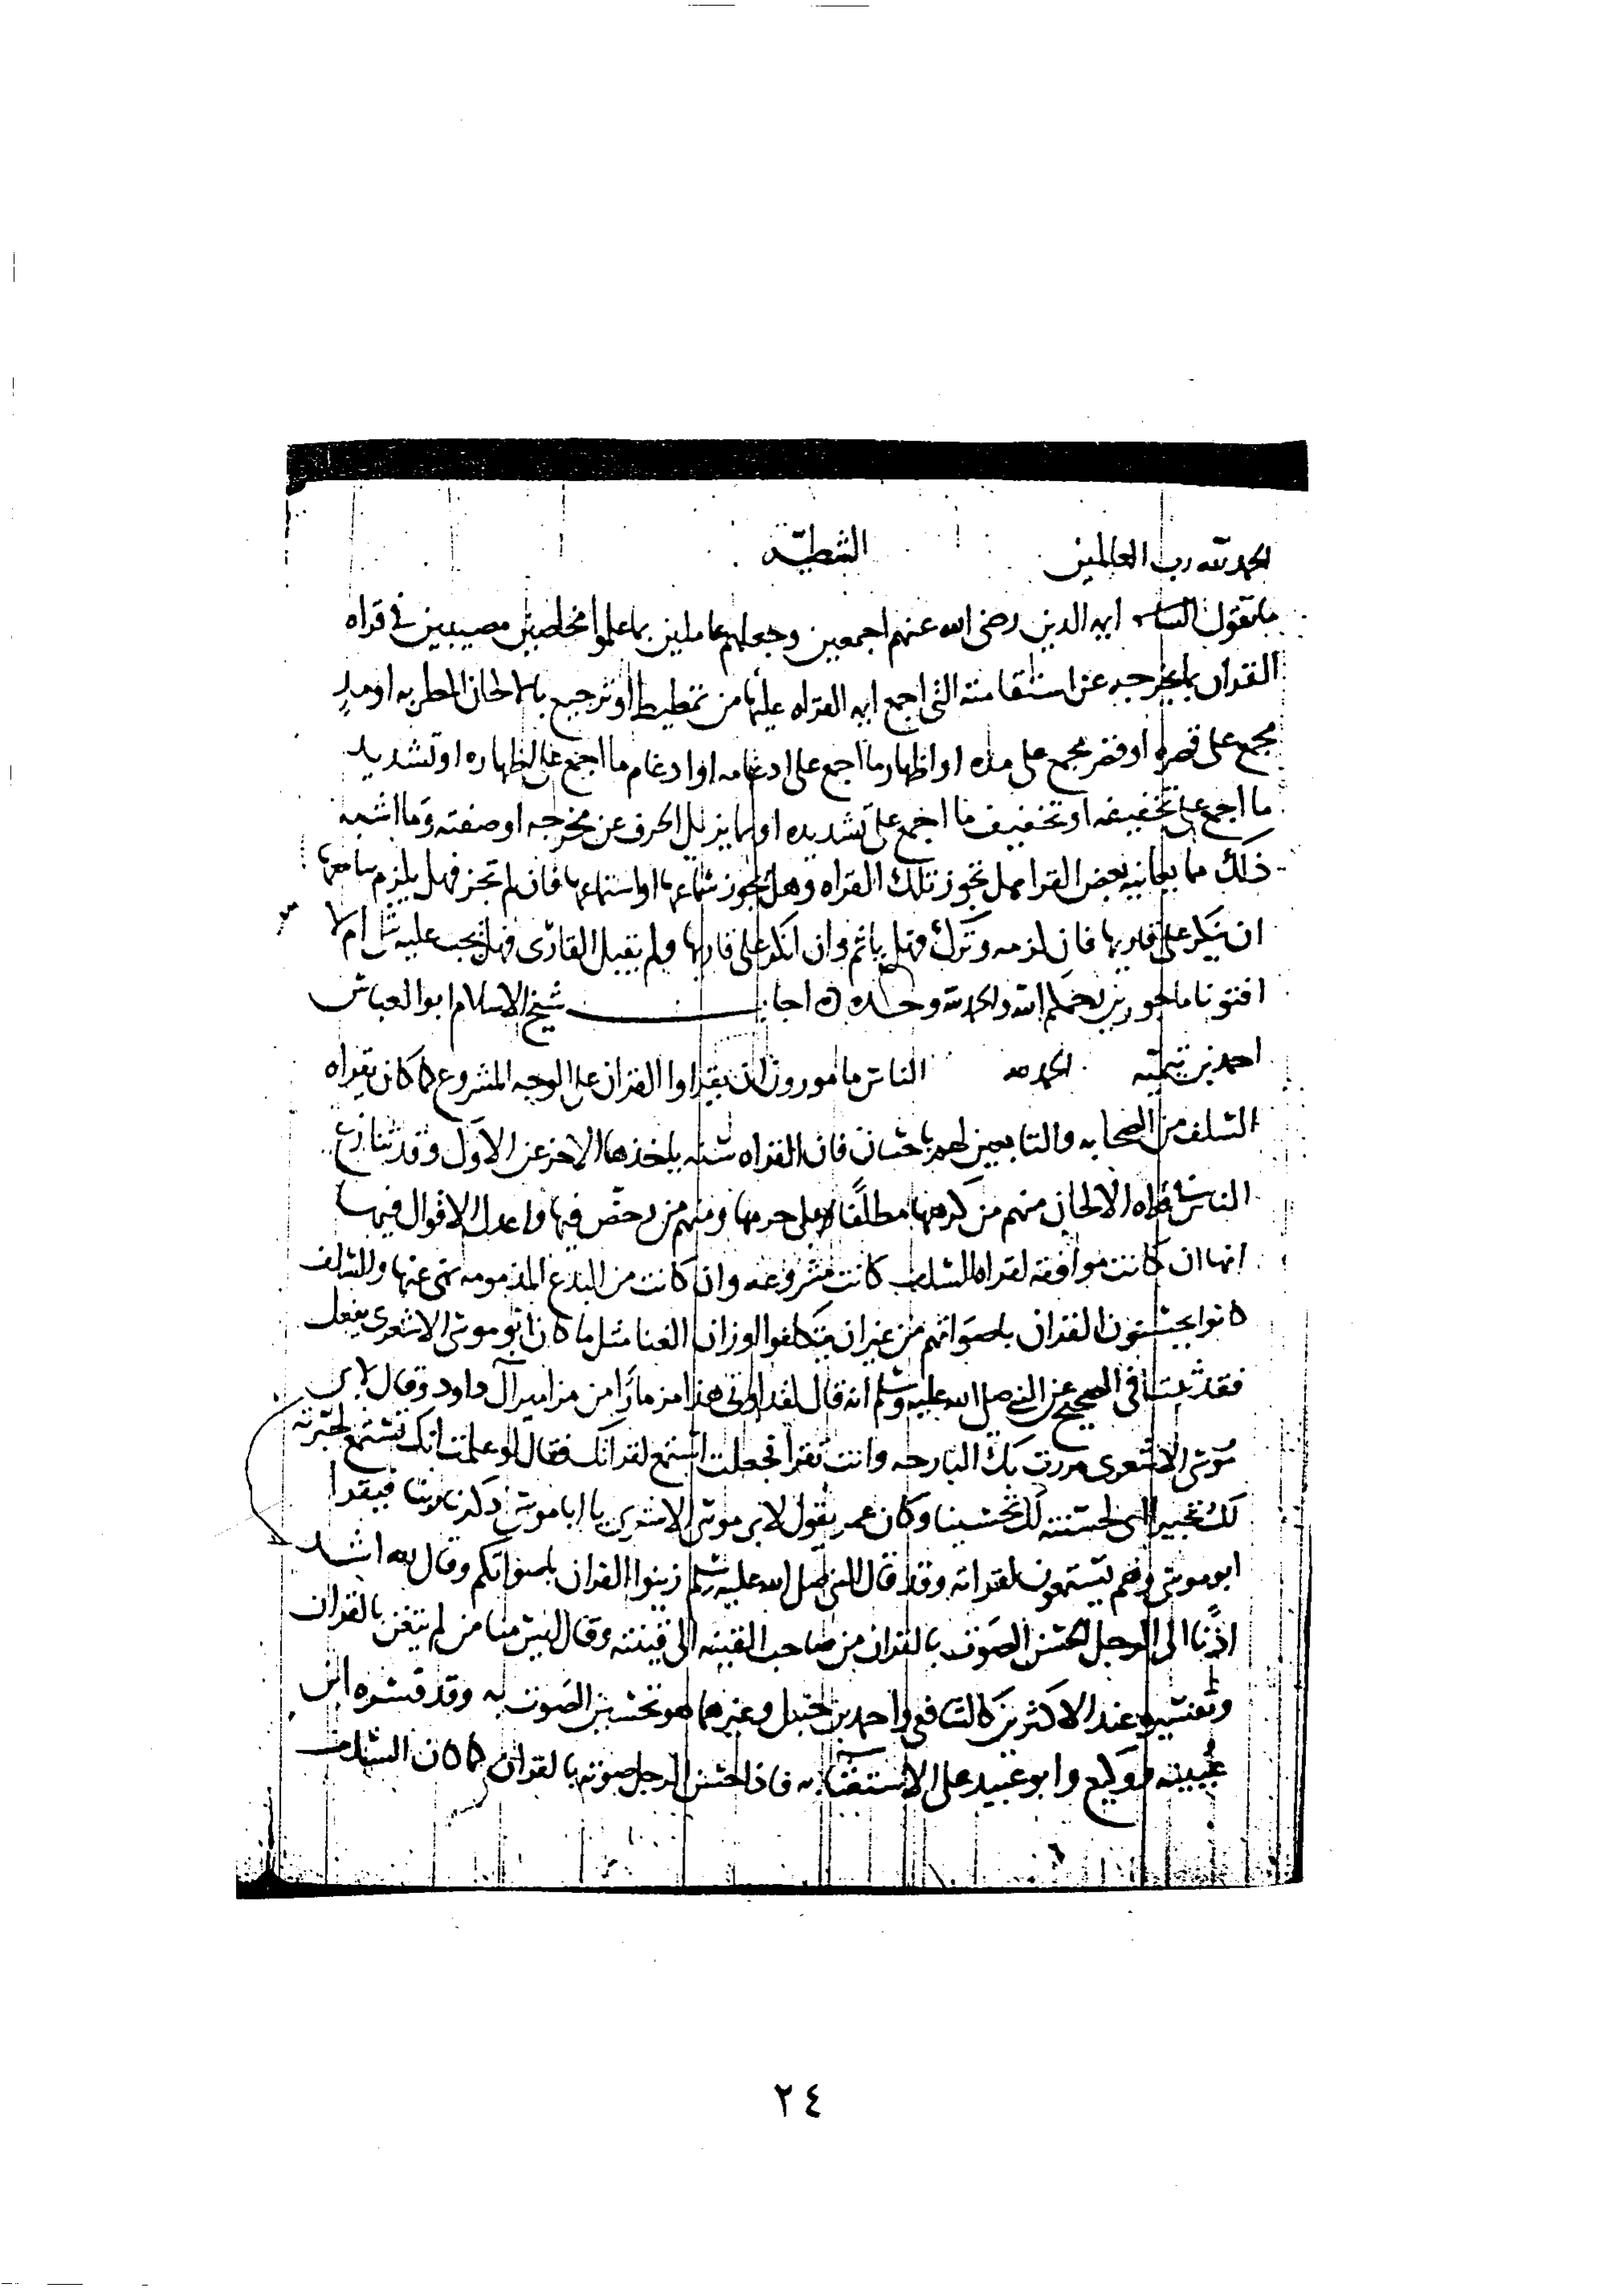 الحمد لله رب العالمين
ما تقول السادة ايمه الدين رضى الله عنهم اجمعين وجعلهم عاملين بما علموا مخلصين مصيبين في قراه
القران بما يخرجه عن استقامته التي اجمع ايمه القراه عليها من تمطيط او ترجيع بالالحان المطربه او مد
مجمع على قصره او قصر مجمع على مده او اظهار ما اجمع على ادغامه او ادغام ما اجمع على اظهاره او تشديد
ما اجمع على تخفيفه او تخفيف ما اجمع على تشديده او بما يزيل الحرف عن مخرجه او صفته وما اشبه
ذلك مما يعانيه بعض القرا فهل تجوز تلك القراه وهل يجوز سماعها او استماعها فان لم تجز فهل يلزم سامعها
ان ينكر على قاريها فان لزمه وترك فهل ياثم وان انكر على قاريها ولم يقبل القارى فهل يجب عليه شى ام لا
افتونا ماجورين رحمكم الله والحمد لله وحده اجاب شيخ الاسلام ابو العباس
احمد بن تيميه الحمد لله الناس مامورون ان يقراوا القران على الوجه المشروع كما كان يقراه
السلف من الصحابه والتابعين لهم باحسان فان القراه سنه ياخذها الاخر عن الاول وقد تنازع
الناس في قراه الالحان منهم من كرهها مطلقا بل حرمها ومنهم من رخص فيها واعدل الاقوال فيها
انها ان كانت موافقه لقراه السلف كانت مشروعه وان كانت من البدع المذمومه نهى عنها والسلف
كانوا يحسنون القران باصواتهم من غير ان يتكلفوا اوزان الغنا مثل ما كان ابو موسى الاشعرى يفعل
فقد ثبت في الصحيح عن النبي صلى الله عليه وسلم انه قال لقد اوتى هذا مزمارا من مزامير آل داود وقال لابى
موسى الاشعرى مررت بك البارحه وانت تقرا فجعلت استمع لقراتك فقال لو علمت انك تستمع لحبرته
لك تحبيرا اى لحسنته لك تحسينا وكان عمر يقول لابى موسى الاشعرى يا ابا موسى ذكرنا ربنا فيقرا
ابو موسى وهم يستمعون لقراته وقد قال النبي صلى الله عليه وسلم زينوا القران باصواتكم وقال لله اشد
اذنا الى الرجل الحسن الصوت بالقران من صاحب القينه الى قينته وقال ليس منا من لم يتغن بالقران
وتفسيره عند الاكثرين كالشافعى واحمد بن حنبل وغيرهما هو تحسين الصوت به وقد فسره ابن
عيينه ووكيع وابو عبيد على الاستغنا به فاذا حسن الرجل صوته بالقران كما كان السلف
٢٤